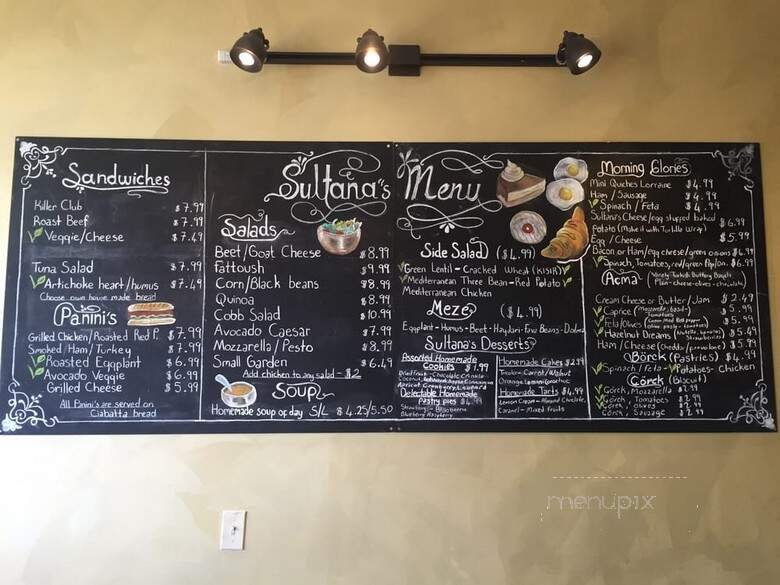 Sandwiches
Killer Club $7.99
Roast Beef $7.99
Veggie/Cheese $7.49
Tuna Salad $7.99
Artichoke heart/humus $7.49
Choose own house made bread
Panini's
Grilled Chicken/Roasted Red P. $7.99
Smoked Ham/Turkey $7.99
Roasted Eggplant $6.99
Avocado Veggie $6.99
Grilled Cheese $5.99
All Panini's are served on
Ciabatta bread
Sultana's Menu
Salads
Beet/Goat Cheese $8.99
Fattoush $9.99
Corn/Black beans $8.99
Quinoa $8.99
Cobb Salad $10.99
Avocado Caesar $7.99
Mozzarella/Pesto $8.99
Small Garden $6.49
Add chicken to any salad - $2
Soup
Homemade soup of day S/L $4.25/5.50
Side Salad ($4.99)
Green Lentil - Cracked Wheat (KISIR)
Mediterranean Three Bean - Red Potato
Mediterranean Chicken
Meze ($4.99)
Eggplant - Humus - Beet - Haydari - Fava Beans - Dolma
Sultana's Desserts
Assorted Homemade
Cookies $1.99
Dried Fruit - Chocolate Crinkle
Coconut
Apricot Cranberry
Delectable Homemade
Pastry pies $4.99
Strawberry - Blueberry
Blueberry Raspberry
Homemade Cakes $2.99
Carrot/Walnut
Orange Lemon
Homemade Tarts $4.99
Lemon Cream - Almond Chocolate
Caramel - Mixed Fruits
Morning Glories
Mini Quiches Lorraine $4.99
Ham / Sausage $4.99
Spinach / Feta $4.99
Sultana's Cheese/egg stuffed baked
Potato (Make it with Tortilla Wrap) $6.99
Egg / Cheese $5.99
Bacon or Ham/egg cheese/green onions $4.99
Spinach, Tomatoes, red/green Pep/On. $6.99
Acma Variety Turkish Buttery Bagels
Plain - cheese - olives - chocolate
Cream Cheese or Butter/Jam $2.49
Caprice (Mozzarella, basil, tomatoes) $5.99
Feta/Olives $5.99
Hazelnut Dreams $5.99
Ham/Cheese (Cheddar/provolone) $5.99
Börek (Pastries) $4.99
Spinach/Feta - Potatoes - chicken
Görek (Biscuit)
Görek, Mozzarella $2.99
Görek, Tomatoes $2.99
Görek, Olives $2.99
Görek, Sausage $2.99
menupix